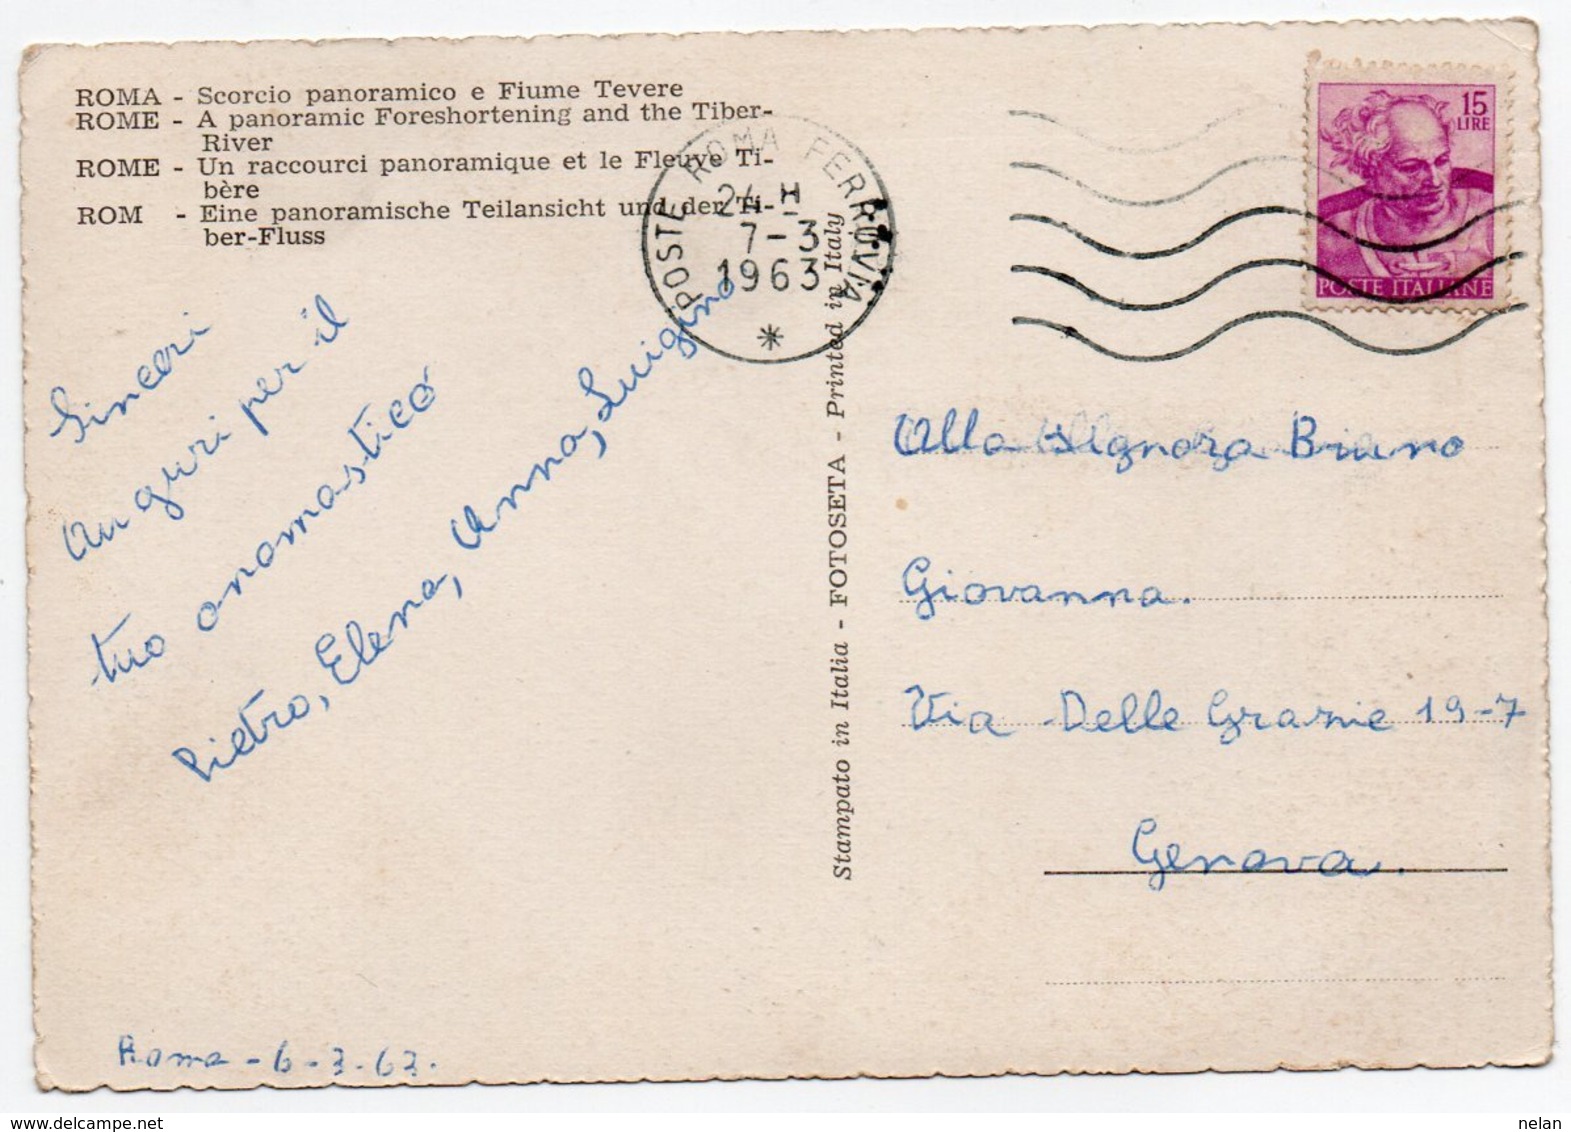 ROMA - Scorcio panoramico e Fiume Tevere
ROME - A panoramic Foreshortening and the Tiber-
River
ROME - Un raccourci panoramique et le Fleuve Ti-
bère
ROM - Eine panoramische Teilansicht und der Ti-
ber-Fluss
POSTE ROMA FERROVIA
24 H
7-3
1963
15
LIRE
POSTE ITALIANE
Sinceri
auguri per il
tuo onomastico
Pietro, Elena, Anna, Luigino
Roma - 6-3-63.
Stampato in Italia - FOTOSETA - Printed in Italy
Alla Signora Bruno
Giovanna.
Via Delle Grazie 19-7
Genova.
nelan